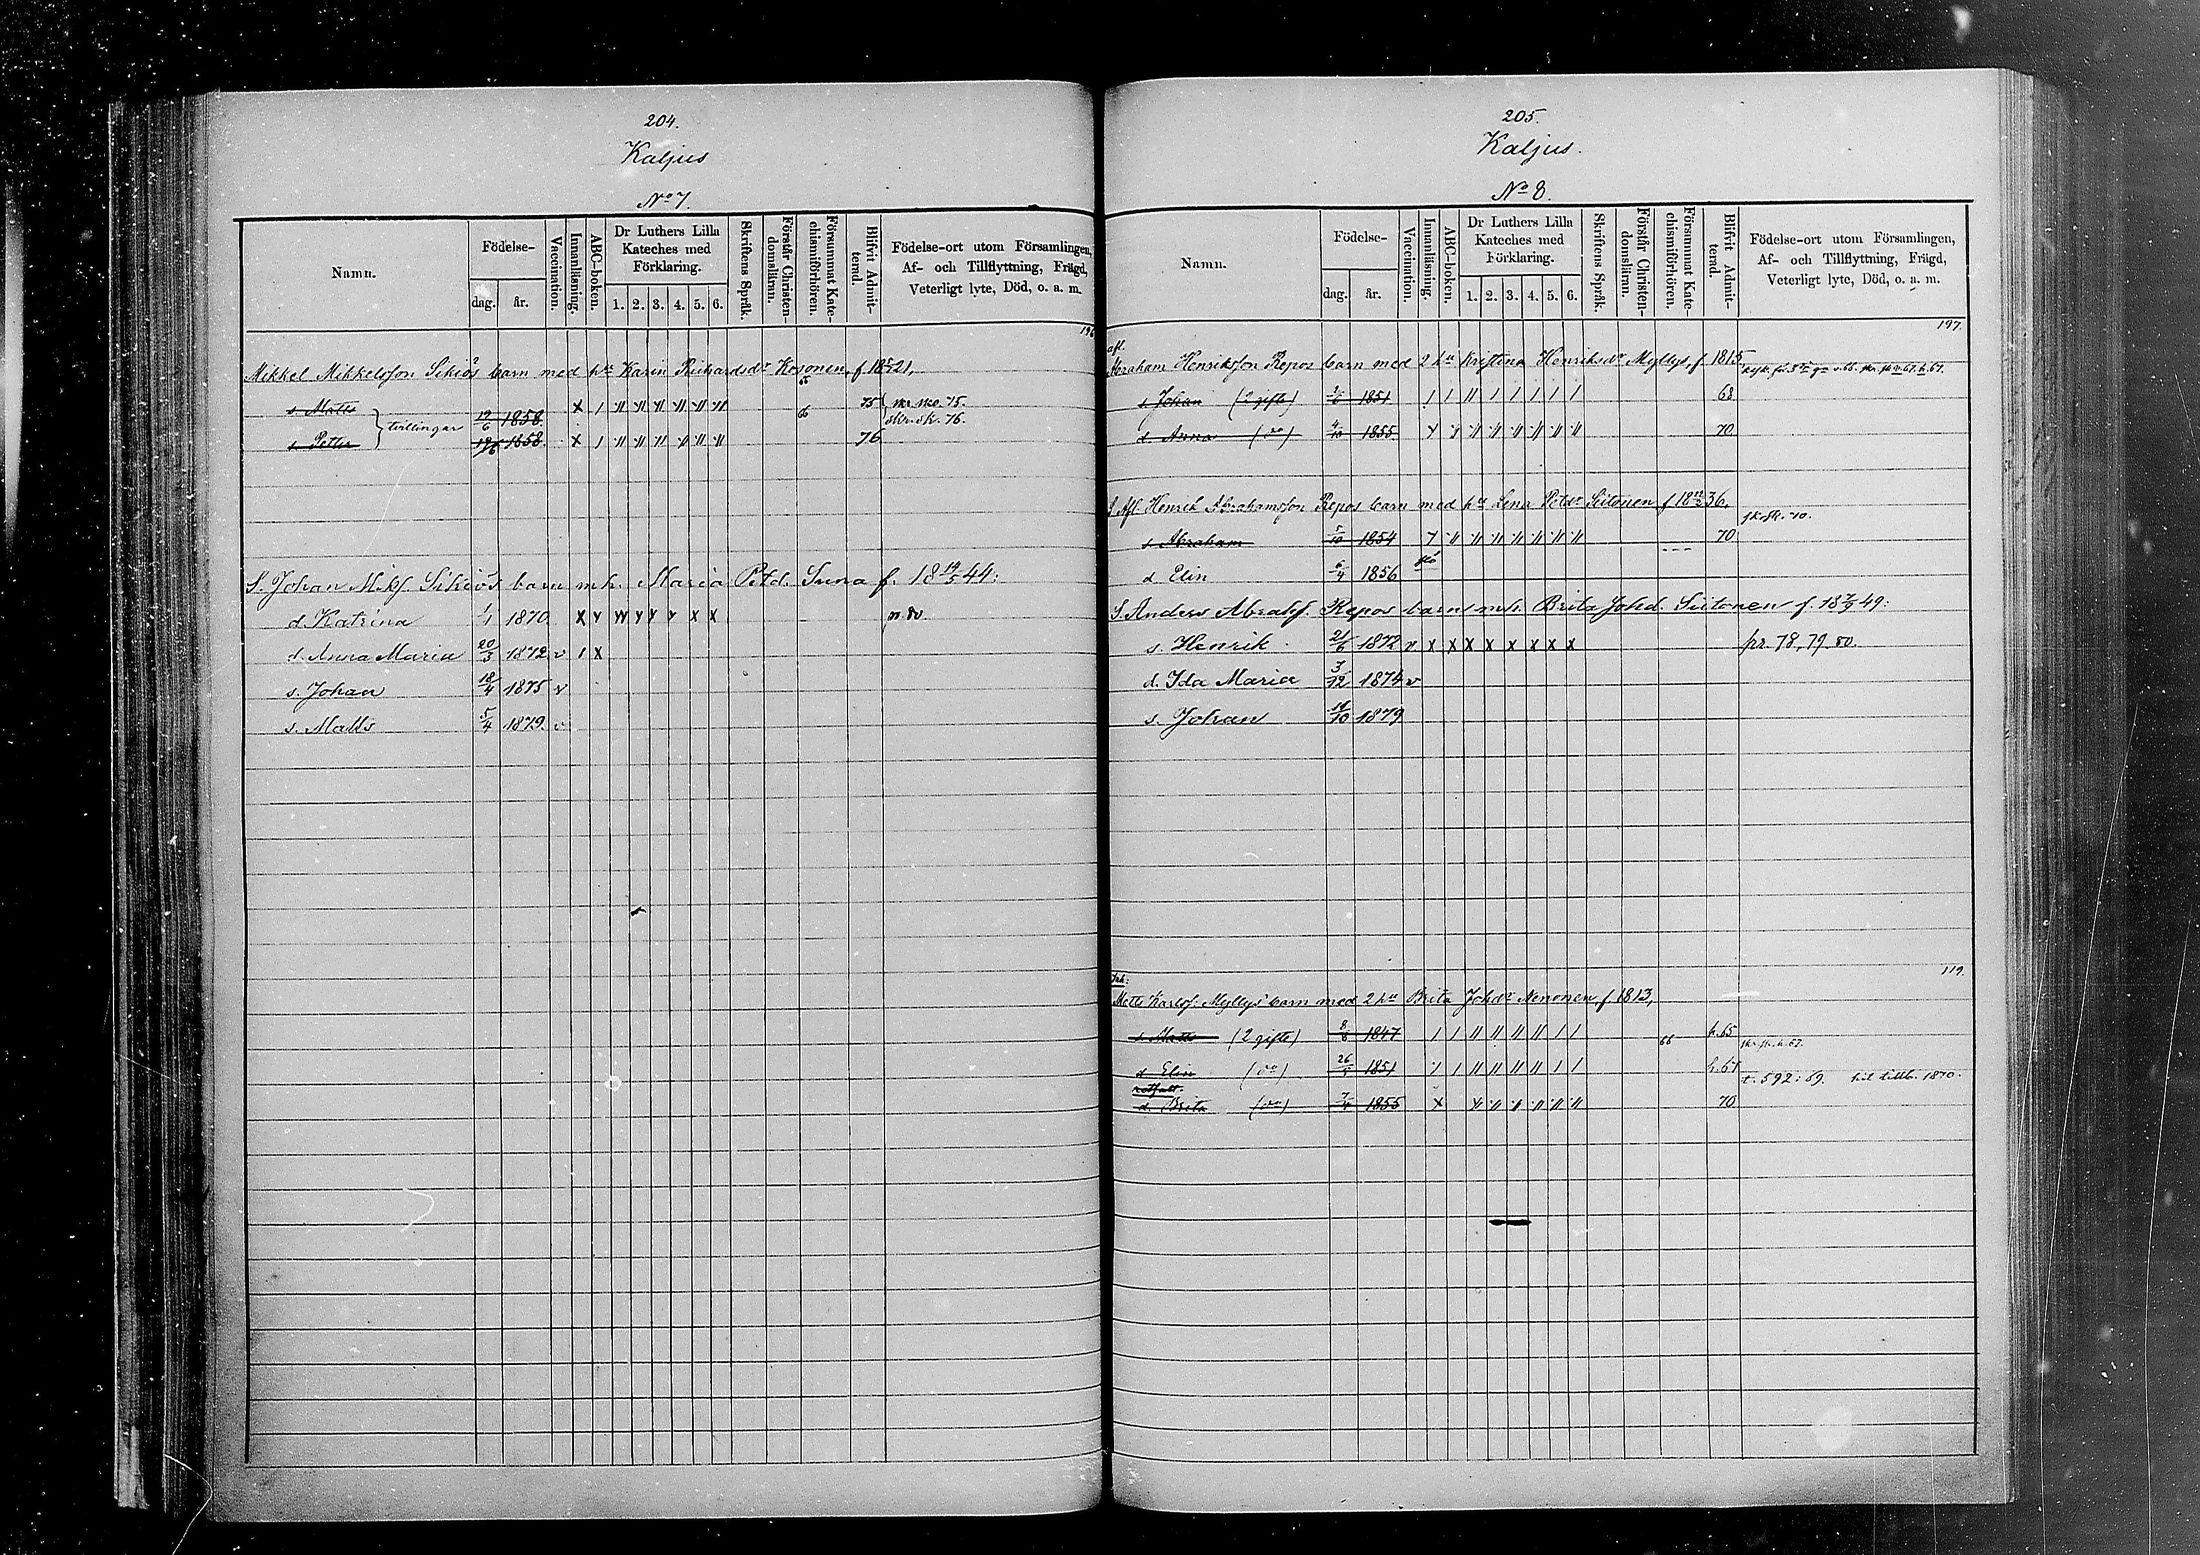 204.
Kaljus
No 7.
Namn.
Födelse-
dag. år.
Vaccination.
Innanläsning.
ABC-boken.
Dr Luthers Lilla Kateches med Förklaring.
1. 2. 3. 4. 5. 6.
Skriftens Språk.
Förstår Christendomsläran.
Försummat Katechismiförhören.
Blifvit Admitterad.
Födelse-ort utom Församlingen,
Af- och Tillflyttning, Frägd,
Veterligt lyte, Död, o. a. m.
196
Mikkel Mikkelsson barn med hu Karin Richardsdr Kosonen, f 1821,
s Matts tvillingar 12/6 1858 75
s Petter 1858 76
S. Johan Mikf. barn m h. Maria Petd. f. 18 14/5 44:
d. Katrina 1/1 1870
d. Anna Maria 20/3 1872 v
s. Johan 18/4 1875 v
s. Matts 5/4 1879. v
205.
Kaljus.
No 8.
Namn.
Födelse-
dag. år.
Vaccination.
Innanläsning.
ABC-boken.
Dr Luthers Lilla Kateches med Förklaring.
1. 2. 3. 4. 5. 6.
Skriftens Språk.
Förstår Christendomsläran.
Försummat Katechismiförhören.
Blifvit Admitterad.
Födelse-ort utom Församlingen,
Af- och Tillflyttning, Frägd,
Veterligt lyte, Död, o. a. m.
197.
afl.
Abraham Henriksson Repos barn med 2 hu Kristina Henriksdr Myllys, f. 1815
s Johan (2 gifte) 1/6 1851 68
d. Anna (do) 4/10 1855 70
S. Afl. Henrik Abrahamsson Repos barn med hu Lena Petdr Siitonen f 1836.
s Abraham 5/10 1854 70
d Elin 6/4 1856
S. Anders Abrahf. Repos barn m h. Brita Johd. Siitonen f. 18 7/9 49:
s. Henrik 21/6 1872 pr. 78, 79. 80.
d. Ida Maria 3/12 1874 v
s. Johan 14/10 1879
119.
Matts Karlsf: Myllys barn med 2 hu Brita Johdr Nenonen f 1813,
s Matts (2 gifte) 8/6 1847 66 h. 65
d. Elin (do) 1851 h. 67 t. 592: 69. 1870.
d. Brita (do) 7/4 1855 70